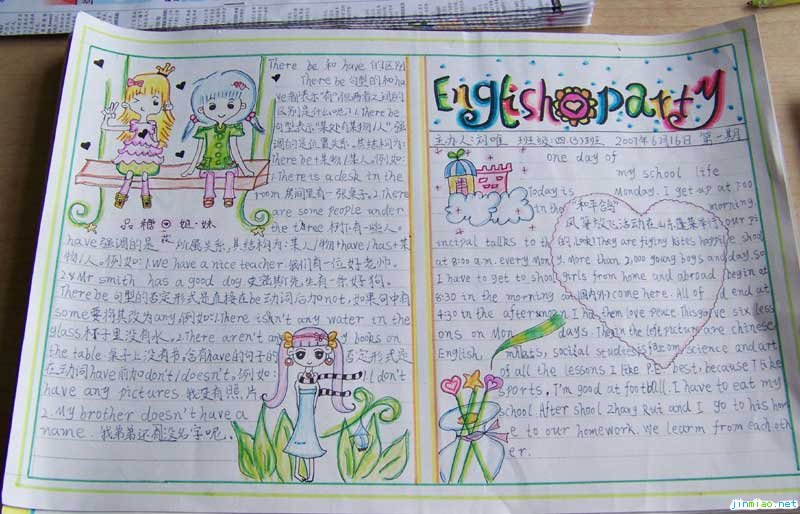 There be 和 have 的区别
There be句型的和ha
ve都表示"有"但两者之间的
区别是什么呢?1.There b
e 句型表示"某处有某物/人"强
调的是位置关系,其结构为:
There be+某物/某人。例如:
1.There is a desk in the
room 房间里有一张桌子。2.There
are some people under
the tree 树下有一些人。
品糖 姐·妹花
have强调的是 所属关系,其结构为:某人/物+have/has+某
物/人。例如:1.We have a nice teacher 我们有一位好老师。
2.Mr Smith has a good dog 史密斯先生有一条好狗。
There be句型的否定形式是直接在be动词后加not,如果句中有
some要将其改为any.例如:1.There isn't any water in the
glass 杯子里没有水。2.There aren't any books on
the table 桌子上没有书。含有have的句子的 否定形式是
在动词have前加don't/doesn't。例如: 1.I don't
have any pictures 我没有照片
2.My brother doesn't have a
name. 我弟弟还没有名字呢。
English Party
主办人:刘唯 班级:四(3)班 2007年6月16日 第一期
one day of
my school life
Today is Monday. I get up at 7:00
in the morning.
our pr
incipal talks to the shool
at 8:00 a.m. every Mon day. so
I have to get to shool begin at
8:30 in the morning an d end at
4:30 in the afternoon. I have six less
ons on Mon days. They are chinese
English, maths, social studies, science and art
of all the lessons I like P.E best, because I like
sports, I'm good at football. I have to eat my
school. After shool zhang Rui and I go to his hom
e to our homework. We learn from each oth
er.
"和平鸽"
风筝放飞活动在山东蓬莱举行
Look! They are flying kites happi
ly. More than 2,000 young boys and
girls from home and abroad
国内外 come here. All of
them love peace. This
in the left picture
is